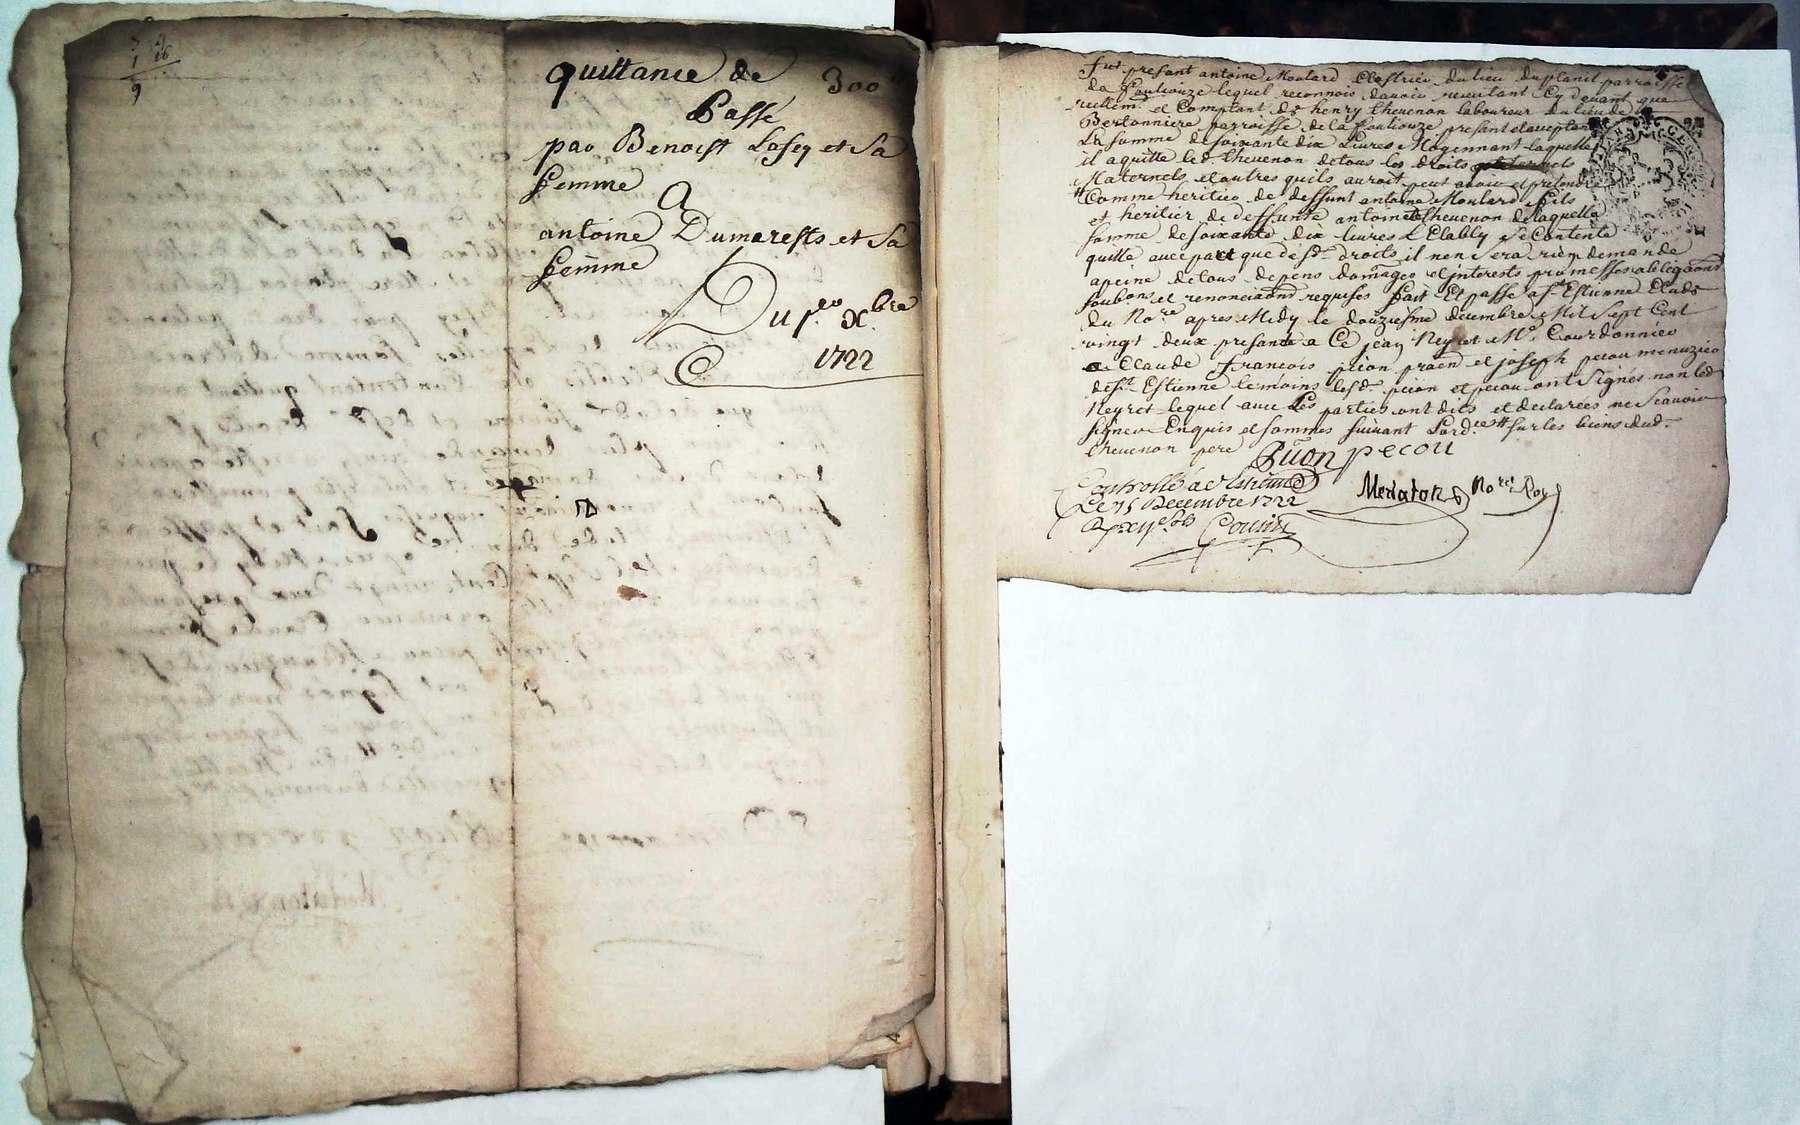 quittance de 300ᵗᵗ
Passé
par Benoist Lafey et Sa
femme
A
antoine Dumarests et Sa
femme
Du p.er Xbre
1722
Fut presant antoine Moulard Clostrier du lieu du planil parroisse
de lequel reconnois davoir cy devant que
et Comptant de henry thevenon laboureur du lieu de
Bertonniere parroisse de la foulliouze presant et aceptant
La somme de soixante dix Livres Moyennant laquelle
il aquitte led. thevenon de tous les droits
Maternels et autres quils auroit peut avoir et pretendre
Comme heritier de deffunt antoine Moulard fils
et heritier de deffunte antoinette thevenon de laquelle
somme de soixante dix livres Se Contente
quitte avec pact que desd. droits il nen Sera rien demande
apeine de tous depens domages et interests promesses obligaons
et renonciaons requises fait Et passe a St Estienne
du Nore apres Midy le douziesme decembre Mil Sept Cent
vingt deux presants a Ce jean Neyret Me Courdonnier
Claude françois pcion et joseph pecou menuzier
de St Estienne temoins lesd. pcion et pecou ont Signés non led
Neyret lequel avec Les parties ont dits et declarées ne Scavoir
signer Enquis et sommes suivant Lord.ce sur les biens dud.
thevenon pere pecou
Controllé a St Estienne Mediator Nore Roy
Le 15 Decembre 1722